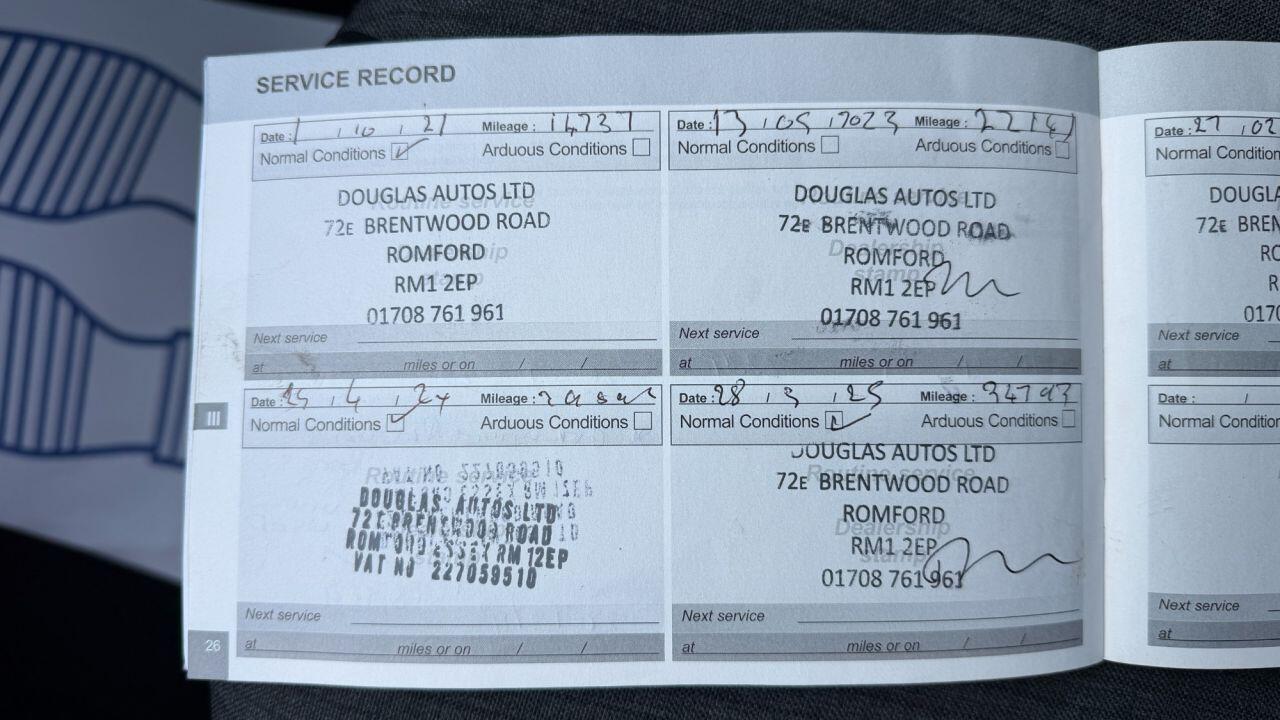 SERVICE RECORD
Date : 1 , 10 , 21 Mileage : 14737
Normal Conditions Arduous Conditions
Routine service
Dealership
stamp
DOUGLAS AUTOS LTD
72E BRENTWOOD ROAD
ROMFORD
RM1 2EP
01708 761 961
Next service
at miles or on / /
Date : 13 , 05 , 2023 Mileage :
Normal Conditions Arduous Conditions
Dealership
stamp
DOUGLAS AUTOS LTD
72E BRENTWOOD ROAD
ROMFORD
RM1 2EP
01708 761 961
Next service
at miles or on / /
Date : , 4 , 24 Mileage :
Normal Conditions Arduous Conditions
Routine service
DOUGLAS AUTOS LTD
72E BRENTWOOD ROAD
ROMFORD ESSEX RM 12EP
VAT NO 227059510
Next service
at miles or on / /
Date : 28 , 3 , 25 Mileage : 34793
Normal Conditions Arduous Conditions
Routine service
Dealership
stamp
DOUGLAS AUTOS LTD
72E BRENTWOOD ROAD
ROMFORD
RM1 2EP
01708 761 961
Next service
at miles or on / /
III
26
Date : 27 , 02
Normal Condition
DOUGLA
72E BREN
RO
R
0170
Next service
at
Date : /
Normal Condition
Next service
at